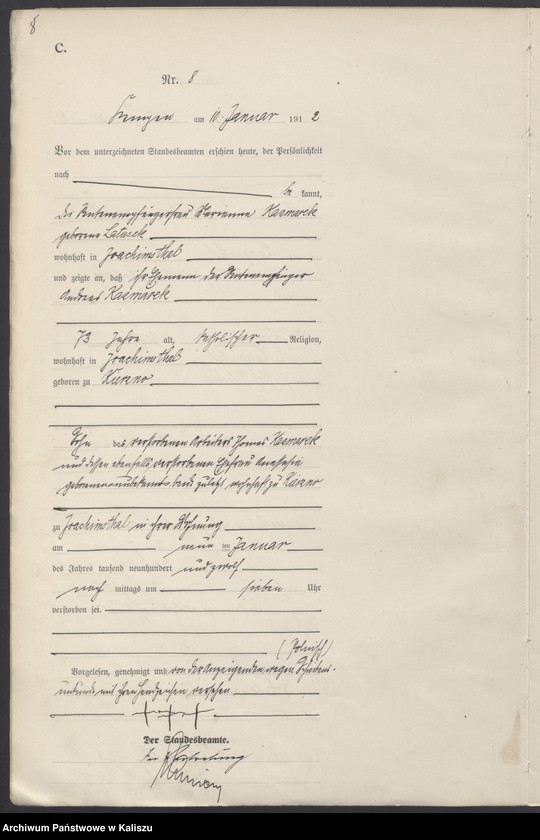 8
C.
Nr. 8
am 10. Januar 191 2
Vor dem unterzeichneten Standesbeamten erschien heute, der Persönlichkeit
nach
be kannt,
die Rentenempfängerfrau Marianna Kazmarek
geborene Latusek
wohnhaft in Joachimsthal
und zeigte an, daß ihr Ehemann der Rentenempfänger
Andreas Kazmarek
73 Jahre alt, katholischer Religion,
wohnhaft in Joachimsthal
geboren zu Kuzno
Sohn des verstorbenen Arbeiters Thomas Kazmarek
und dessen ebenfalls verstorbenen Ehefrau Anastasia
geborenen unbekannt, beide zuletzt wohnhaft zu Kuzno
zu Joachimsthal in ihrer Wohnung
am neun ten Januar
des Jahres tausend neunhundert und zwölf
nach mittags um sieben Uhr
verstorben sei.
(Polnisch)
Vorgelesen, genehmigt und von der Anzeigenden wegen Schreibens-
unkunde mit ihren Handzeichen versehen.
+ + +
Der Standesbeamte.
In Vertretung
Archiwum Państwowe w Kaliszu